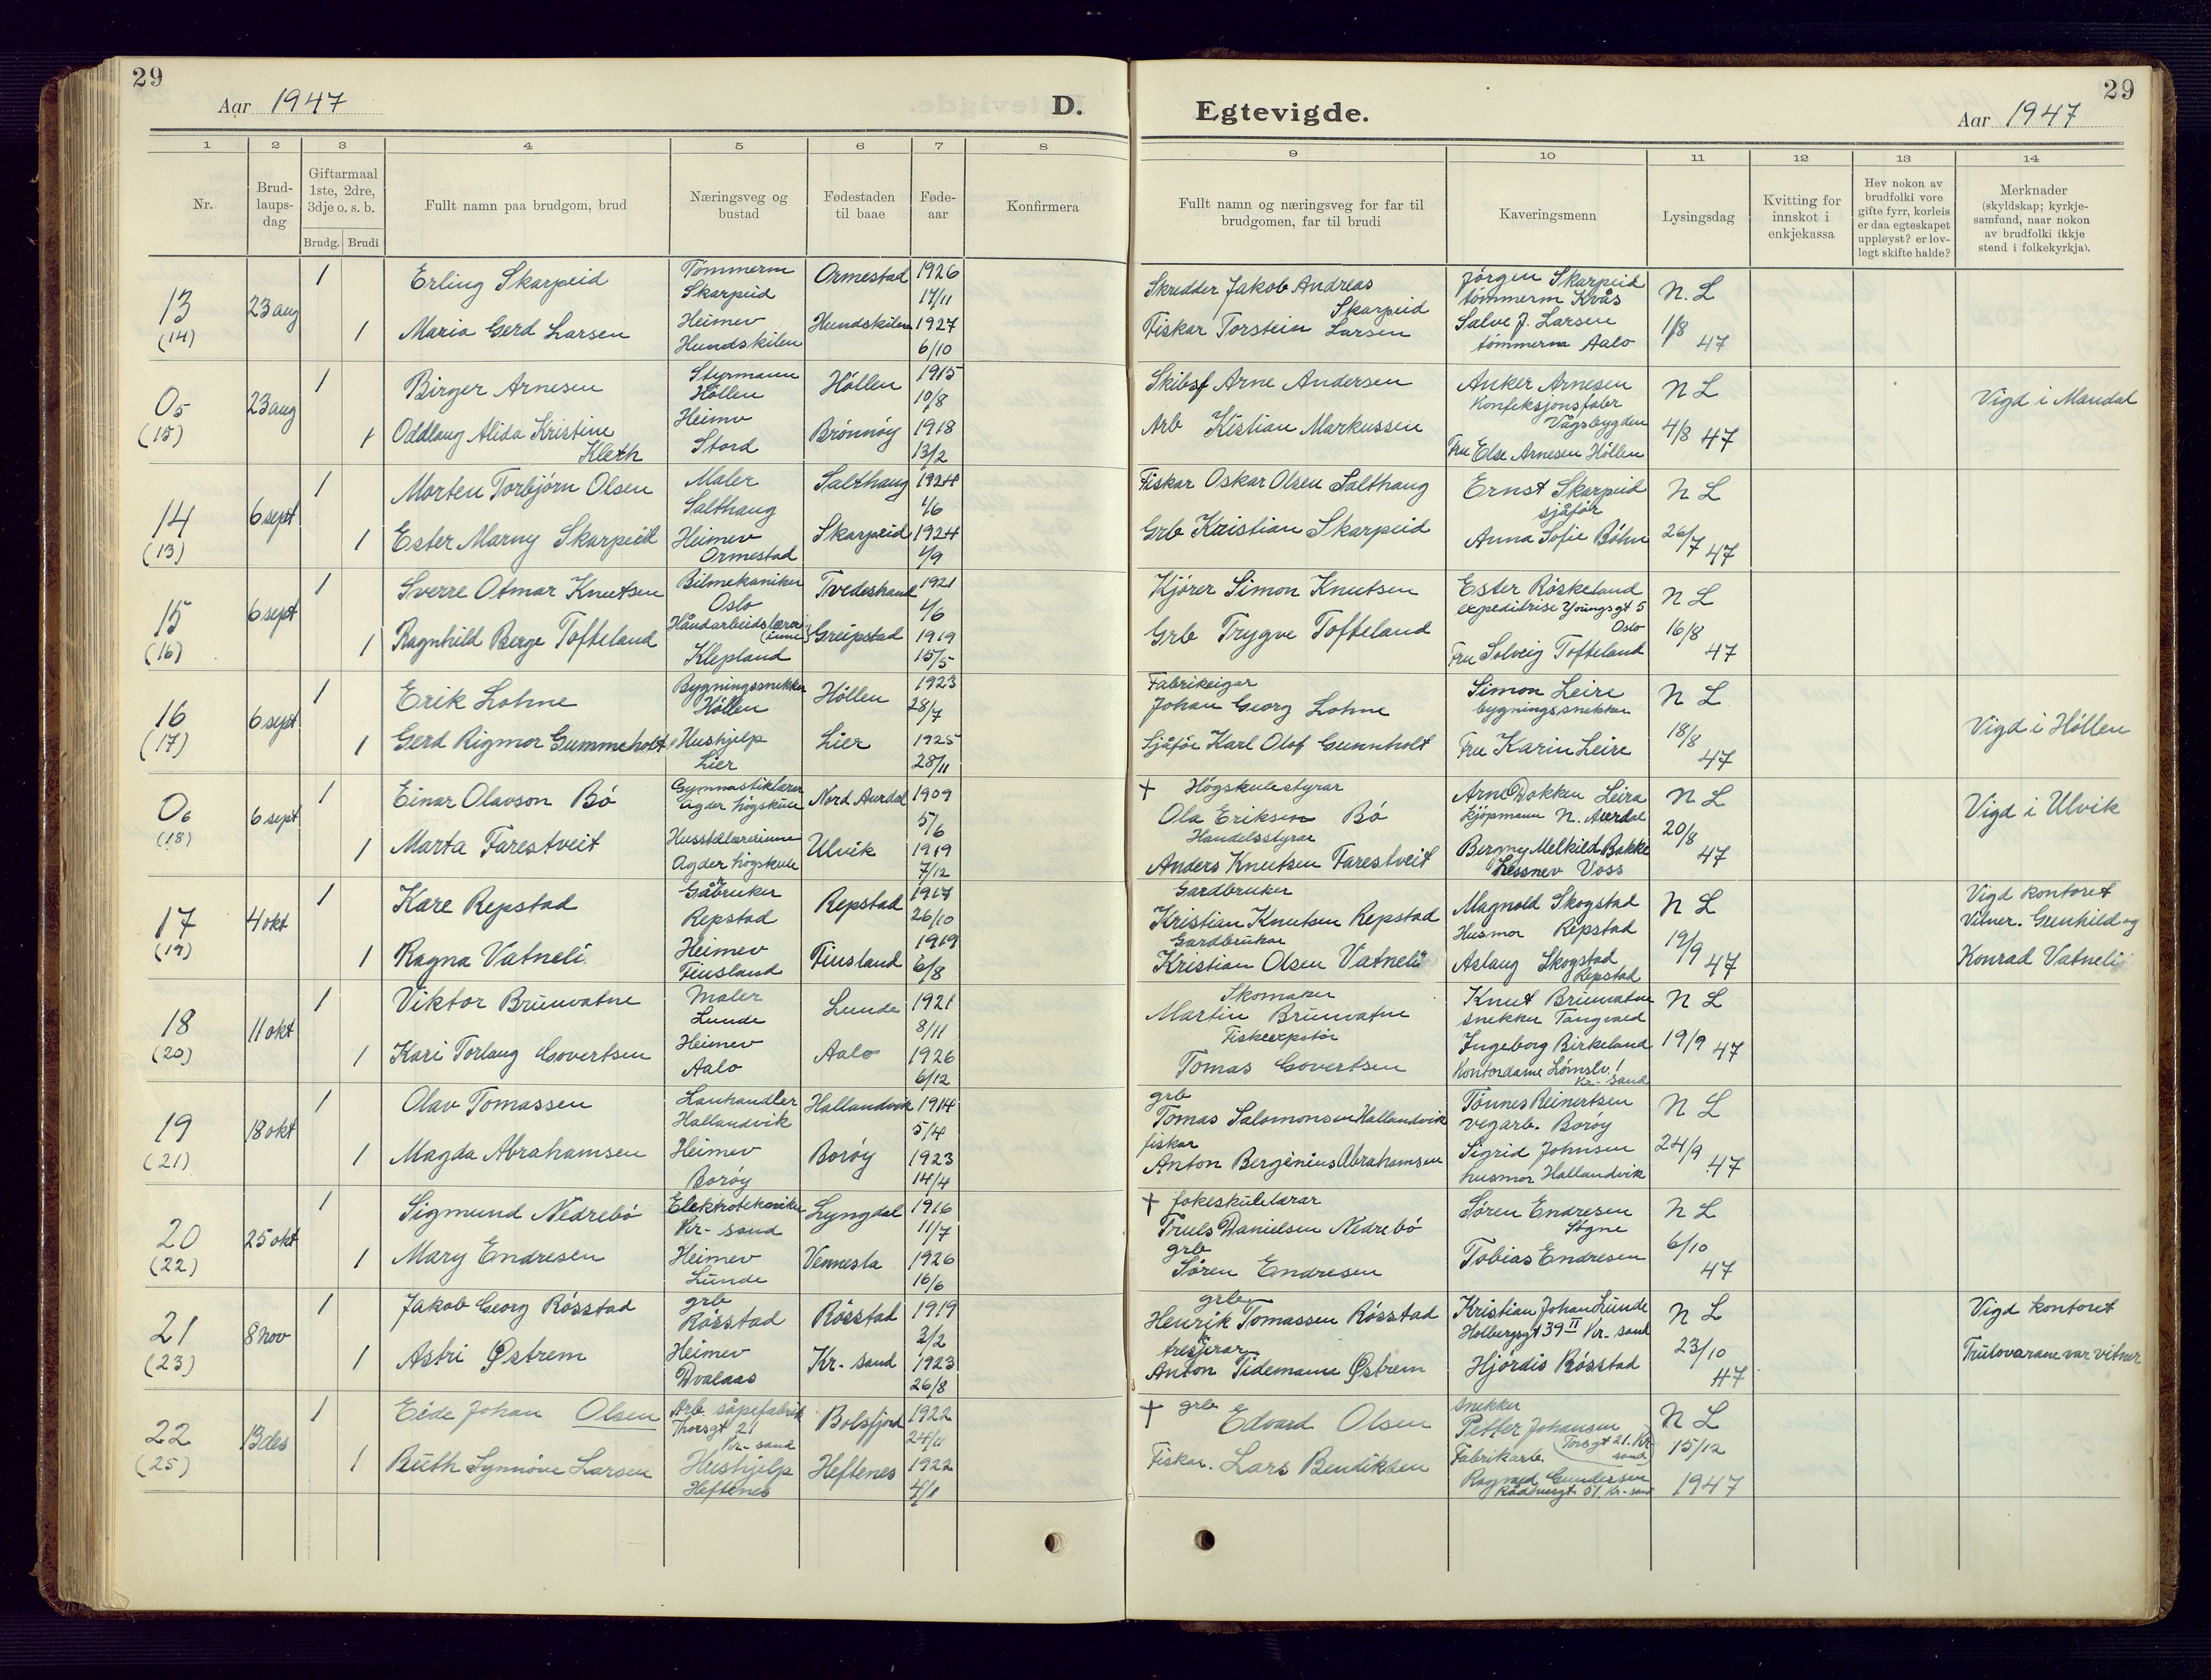 29
Aar 1947
D.
Egtevigde.
Aar 1947
29
1 2 3 4 5 6 7 8
9 10 11 12 13 14
Nr.
Brud-
laups-
dag
Giftarmaal
1ste, 2dre,
3dje o. s. b.
Brudg. Brudi
Fullt namn paa brudgom, brud
Næringsveg og
bustad
Fødestaden
til baae
Føde-
aar
Konfirmera
Fullt namn og næringsveg for far til
brudgomen, far til brudi
Kaveringsmenn
Lysingsdag
Kvitting for
innskot i
enkjekassa
Hev nokon av
brudfolki vore
gifte fyrr, korleis
er daa egteskapet
uppløyst? er lov-
legt skifte halde?
Merknader
(skyldskap; kyrkje-
samfund, naar nokon
av brudfolki ikkje
stend i folkekyrkja).
13
(14)
23 aug
1
Erling Skarpeid
Tømmerm
Skarpeid
Ormestad
1926
14/11
Skredder Jakob Andreas
Skarpeid
Jørgen Skarpeid
tømmerm Kvås
N. L
1
Maria Gerd Larsen
Heimev
Hundskilen
Hundskilen
1927
6/10
Fiskar Torstein Larsen
Salve J. Larsen
tømmerm Aalo
1/8 47
O5
(15)
23 aug
1
Birger Arnesen
Styrmann
Höllen
Höllen
1915
10/8
Skibsf Arne Andersen
Anker Arnesen
Konfeksjonsfabr
Vågsbygden
N L
Vigd i Mandal
1
Oddlaug Alida Kristine
Kleth
Heimv
Stord
Brönnöy
1918
13/2
Arb Kistian Markussen
Fru Else Arnesen Höllen
4/8 47
14
(13)
6 sept
1
Morten Torbjörn Olsen
Maler
Salthaug
Salthaug
1924
4/6
Fiskar Oskar Olsen Salthaug
Ernst Skarpeid
sjåfør
N L
1
Ester Marny Skarpeid
Heimev
Ormestad
Skarpeid
1924
4/9
Grb Kristian Skarpeid
Anna Sofie Böhn
26/7 47
15
(16)
6 sept
1
Sverre Otmar Knutsen
Bilmekaniker
Oslo
Tvedestrand
1921
4/6
Kjörer Simon Knutsen
Ester Röskeland
expeditrise Youngsgt 5
Oslo
N L
1
Ragnhild Berge Tofteland
Håndarbeidslærer
(inne)
Klepland
Greipstad
1919
15/5
Grb Trygve Tofteland
Fru Solveig Tofteland
16/8
47
16
(17)
6 sept
1
Erik Lohne
Bygningssnekker
Höllen
Höllen
1923
28/7
Fabrikeigar
Johan Georg Lohne
Simon Leire
bygningssnekker
N L
Vigd i Höllen
1
Gerd Rigmor Gummeholt
Hushjelp
Lier
Lier
1925
28/11
Sjåför Karl Olof Gunnholt
Fru Karin Leire
18/8
47
O6
(18)
6 sept
1
Einar Olavson Bö
Gymnastiklærar
Agder högskule
Nord Aurdal
1909
5/6
+ Högskulestyrar
Ola Eriksen Bö
Arne Dokken Leira
kjöpmann N. Aurdal
N L
Vigd i Ulvik
1
Marta Farestveit
Husstellærerinne
Agder högskule
Ulvik
1919
7/12
Handelsstyrar
Anders Knutsen Farestveit
Bergny Melkild Bakke
Voss
20/8
47
17
(19)
4 okt
1
Kare Repstad
Gåbruker
Repstad
Repstad
1917
26/10
Gardbruker
Kristian Knutsen Repstad
Magnold Skogstad
Husmor Repstad
N L
Vigd kontoret
Vitner. Gunhild og
1
Ragna Vatneli
Heimev
Finsland
Finsland
1919
6/8
Gardbrukar
Kristian Olsen Vatneli
Aslaug Skogstad
Repstad
19/9 47
Konrad Vatneli
18
(20)
11 okt
1
Viktor Brünvatne
Maler
Lunde
Lunde
1921
8/11
Skomaker
Martin Brünvatne
Knut Brünvatne
snekker Tangvald
N L
1
Kari Torlaug Govertsen
Heimev
Aalo
Aalo
1926
6/12
Fiskeexpotör
Tomas Govertsen
Ingeborg Birkeland
Kontordame
Kr-sand
19/9 47
19
(21)
18 okt
1
Olav Tomassen
Lanhandler
Hallandvik
Hallandvik
1914
5/4
grb
Tomas Salomonsen Hallandvik
Tönnes Reinertsen
vegarb. Boröy
N L
1
Magda Abrahamsen
Heimev
Boröy
Boröy
1923
14/4
fiskar
Anton Bergenius Abrahamsen
Sigrid Johnsen
husmor Hallandvik
24/9
47
20
(22)
25 okt
1
Sigmund Nedrebö
Elektrotekniker
Kr-sand
Lyngdal
1916
11/7
+ fokeskulelærar
Truls Danielsen Nedrebö
Søren Endresen
Søgne
N L
1
Mary Endresen
Heimev
Lunde
Vennesla
1926
16/6
grb
Søren Endresen
Tobias Endresen
6/10
47
21
(23)
8 nov
1
Jakob Georg Rösstad
grb
Rösstad
Rösstad
1919
2/2
grb
Henrik Tomassen Rösstad
Kristian Johan Lunde
Holbergsgt 39 II Kr-sand
N L
Vigd kontort
1
Astri Østrem
Heimev
Dvalaas
Kr-sand
1923
26/8
Anton Tidemann Østrem
Hjördis Rösstad
23/10
47
Trulovarane var vitner
22
(25)
13 des
1
Eide Johan Olsen
Arb. såpefabrik
Thorsgt 21
Kr-sand
Bolsfjord
1922
24/11
+ grb
Edvard Olsen
Snekker
Petter Johansen
(Torsgt 21. Kr
sand)
N L
1
Ruth Synnöve Larsen
Hushjelp
Heftenes
Heftenes
1922
4/1
Fiskar. Lars Bendiksen
Fabrikarb.
Ragnvald Gundersen
Rådhusgt 51. Kr-sand
15/12
1947